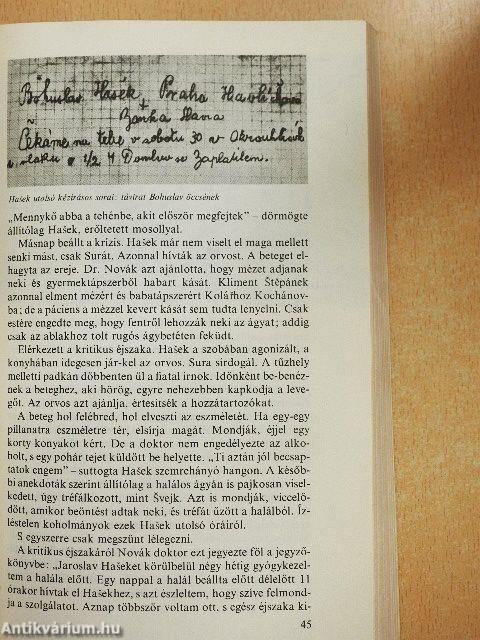 Bohuslav Hašek Praha Havlíčkova
Banka Slavia
Čekáme na tebe v sobotu 30 v Okrouhlicích
u vlaku o 1/2 4 Domluv se Zaplatilem.
Hašek utolsó kézírásos sorai: távirat Bohuslav öccsének
„Mennykő abba a tehénbe, akit először megfejtek” – dörmögte
állítólag Hašek, erőltetett mosollyal.
Másnap beállt a krízis. Hašek már nem viselt el maga mellett
senki mást, csak Surát. Azonnal hívták az orvost. A beteget el-
hagyta az ereje. Dr. Novák azt ajánlotta, hogy mézet adjanak
neki és gyermektápszerből habart kását. Kliment Štěpánek
azonnal elment mézért és babatápszerért Kolářhoz Kochánov-
ba; de a páciens a mézzel kevert kását sem tudta lenyelni. Csak
estére engedte meg, hogy fentről lehozzák neki az ágyat; addig
csak az ablakhoz tolt rugós ágybetéten feküdt.
Elérkezett a kritikus éjszaka. Hašek a szobában agonizált, a
konyhában idegesen jár-kel az orvos. Sura sírdogál. A tűzhely
melletti padkán döbbenten ül a fiatal írnok. Időnként be-benéz-
nek a beteghez, aki hörög, egyre nehezebben kapkodja a leve-
gőt. Az orvos azt ajánlja, értesítsék a hozzátartozókat.
A beteg hol felébred, hol elveszti az eszméletét. Ha egy-egy
pillanatra eszméletre tér, elsírja magát. Mondják, éjjel egy
korty konyakot kért. De a doktor nem engedélyezte az alko-
holt, s egy pohár tejet küldött be helyette. „Ti aztán jól becsap-
tatok engem” – suttogta Hašek szemrehányó hangon. A később-
bi anekdoták szerint állítólag a halálos ágyán is pajkosan visel-
kedett, úgy tréfálkozott, mint Švejk. Azt is mondják, viccelő-
dött, amikor beöntést adtak neki, és tréfát űzött a halálból. Íz-
léstelen koholmányok ezek Hašek utolsó óráiról.
S egyszerre csak megszűnt lélegezni.
A kritikus éjszakáról Novák doktor ezt jegyezte föl a jegyző-
könyvbe: „Jaroslav Hašeket körülbelül négy hétig gyógykezel-
tem a halála előtt. Egy nappal a halál beállta előtt délelőtt 11
órakor hívtak el Hašekhez, s azt észleltem, hogy szíve felmond-
ja a szolgálatot. Aznap többször voltam ott, s egész éjszaka ki-
45
Antikvárium.hu